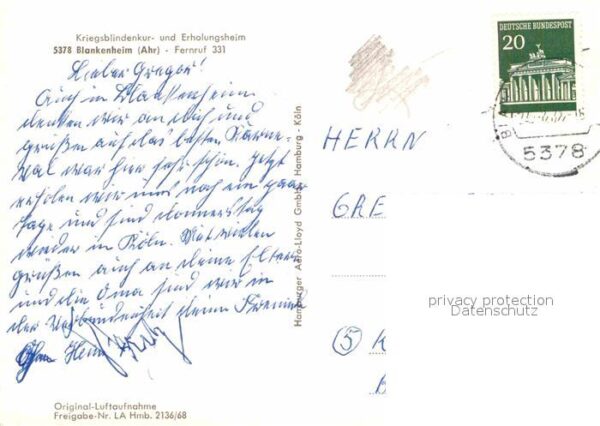 Kriegsblindenkur- und Erholungsheim
5378 Blankenheim (Ahr) - Fernruf 331
Lieber Gregor!
Auch in Blankenheim
denken wir an dich und
grüßen auf das beste. Karne-
val war hier sehr schön. Jetzt
erholen wir uns noch ein paar
Tage und sind donnerstag
wieder in Köln. Mit vielen
Grüßen auch an deine Eltern
und die Oma sind wir in
der Verbundenheit deine Freunde
Hamburger Aero-Lloyd GmbH, Hamburg - Köln
Original-Luftaufnahme
Freigabe-Nr. LA Hmb. 2136/68
DEUTSCHE BUNDESPOST
20
5378
HERRN
GRE
privacy protection
Datenschutz
5 K